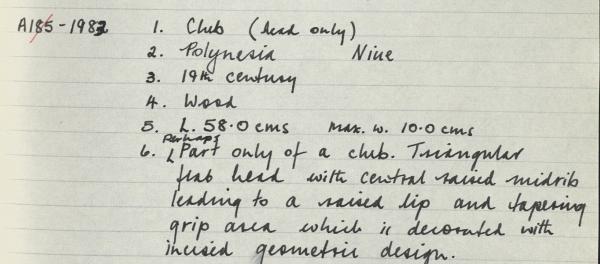 A185-1982 1. Club (head only)
2. Polynesia Niue
3. 19th century
4. Wood
5. L. 58.0 cms max. w. 10.0 cms
perhaps
6. Part only of a club. Triangular
flat head with central raised midrib
leading to a raised lip and tapering
grip area which is decorated with
incised geometric design.